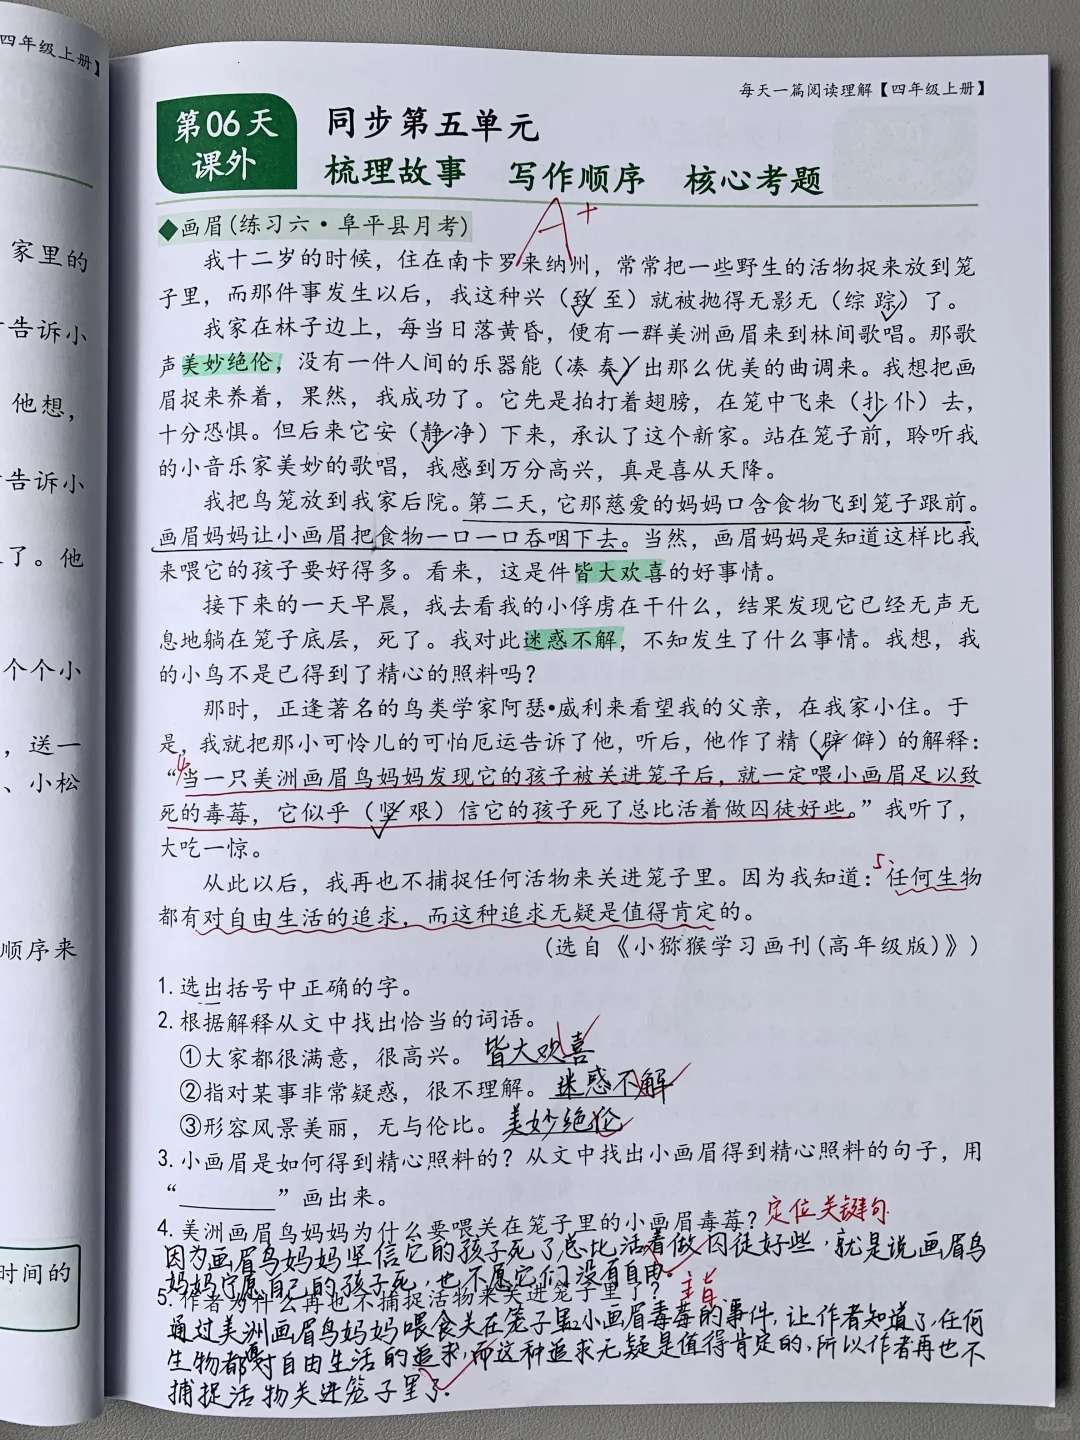 四年级上册】
家里的
告诉小
他想，
告诉小
了。他
个个小
，送一
、小松
顺序来
时间的
每天一篇阅读理解【四年级上册】
第06天
课外
同步第五单元
梳理故事 写作顺序 核心考题
A+
◆画眉(练习六·阜平县月考)
我十二岁的时候，住在南卡罗来纳州，常常把一些野生的活物捉来放到笼
子里，而那件事发生以后，我这种兴（致 至）就被抛得无影无（综 踪）了。
我家在林子边上，每当日落黄昏，便有一群美洲画眉来到林间歌唱。那歌
声美妙绝伦，没有一件人间的乐器能（凑 奏）出那么优美的曲调来。我想把画
眉捉来养着，果然，我成功了。它先是拍打着翅膀，在笼中飞来（扑 仆）去，
十分恐惧。但后来它安（静 净）下来，承认了这个新家。站在笼子前，聆听我
的小音乐家美妙的歌唱，我感到万分高兴，真是喜从天降。
我把鸟笼放到我家后院。第二天，它那慈爱的妈妈口含食物飞到笼子跟前。
画眉妈妈让小画眉把食物一口一口吞咽下去。当然，画眉妈妈是知道这样比我
来喂它的孩子要好得多。看来，这是件皆大欢喜的好事情。
接下来的一天早晨，我去看我的小俘虏在干什么，结果发现它已经无声无
息地躺在笼子底层，死了。我对此迷惑不解，不知发生了什么事情。我想，我
的小鸟不是已得到了精心的照料吗？
那时，正逢著名的鸟类学家阿瑟•威利来看望我的父亲，在我家小住。于
是，我就把那小可怜儿的可怕厄运告诉了他，听后，他作了精（辟 僻）的解释：
4
“当一只美洲画眉鸟妈妈发现它的孩子被关进笼子后，就一定喂小画眉足以致
死的毒莓，它似乎（坚 艰）信它的孩子死了总比活着做囚徒好些。”我听了，
大吃一惊。
从此以后，我再也不捕捉任何活物来关进笼子里。因为我知道：5、任何生物
都有对自由生活的追求，而这种追求无疑是值得肯定的。
(选自《小猕猴学习画刊(高年级版)》)
1.选出括号中正确的字。
2.根据解释从文中找出恰当的词语。
①大家都很满意，很高兴。皆大欢喜
②指对某事非常疑惑，很不理解。迷惑不解
③形容风景美丽，无与伦比。美妙绝伦
3.小画眉是如何得到精心照料的？从文中找出小画眉得到精心照料的句子，用
“________”画出来。
4.美洲画眉鸟妈妈为什么要喂关在笼子里的小画眉毒莓？定位关键句
因为画眉鸟妈妈坚信它的孩子死了总比活着做囚徒好些，就是说画眉鸟
妈妈宁愿自己的孩子死，也不愿它们没有自由。
5.作者为什么再也不捕捉活物来关进笼子里了？主旨
通过美洲画眉鸟妈妈喂食关在笼子里小画眉毒莓的事件，让作者知道了，任何
生物都有对自由生活的追求，而这种追求无疑是值得肯定的，所以作者再也不
捕捉活物关进笼子里了。